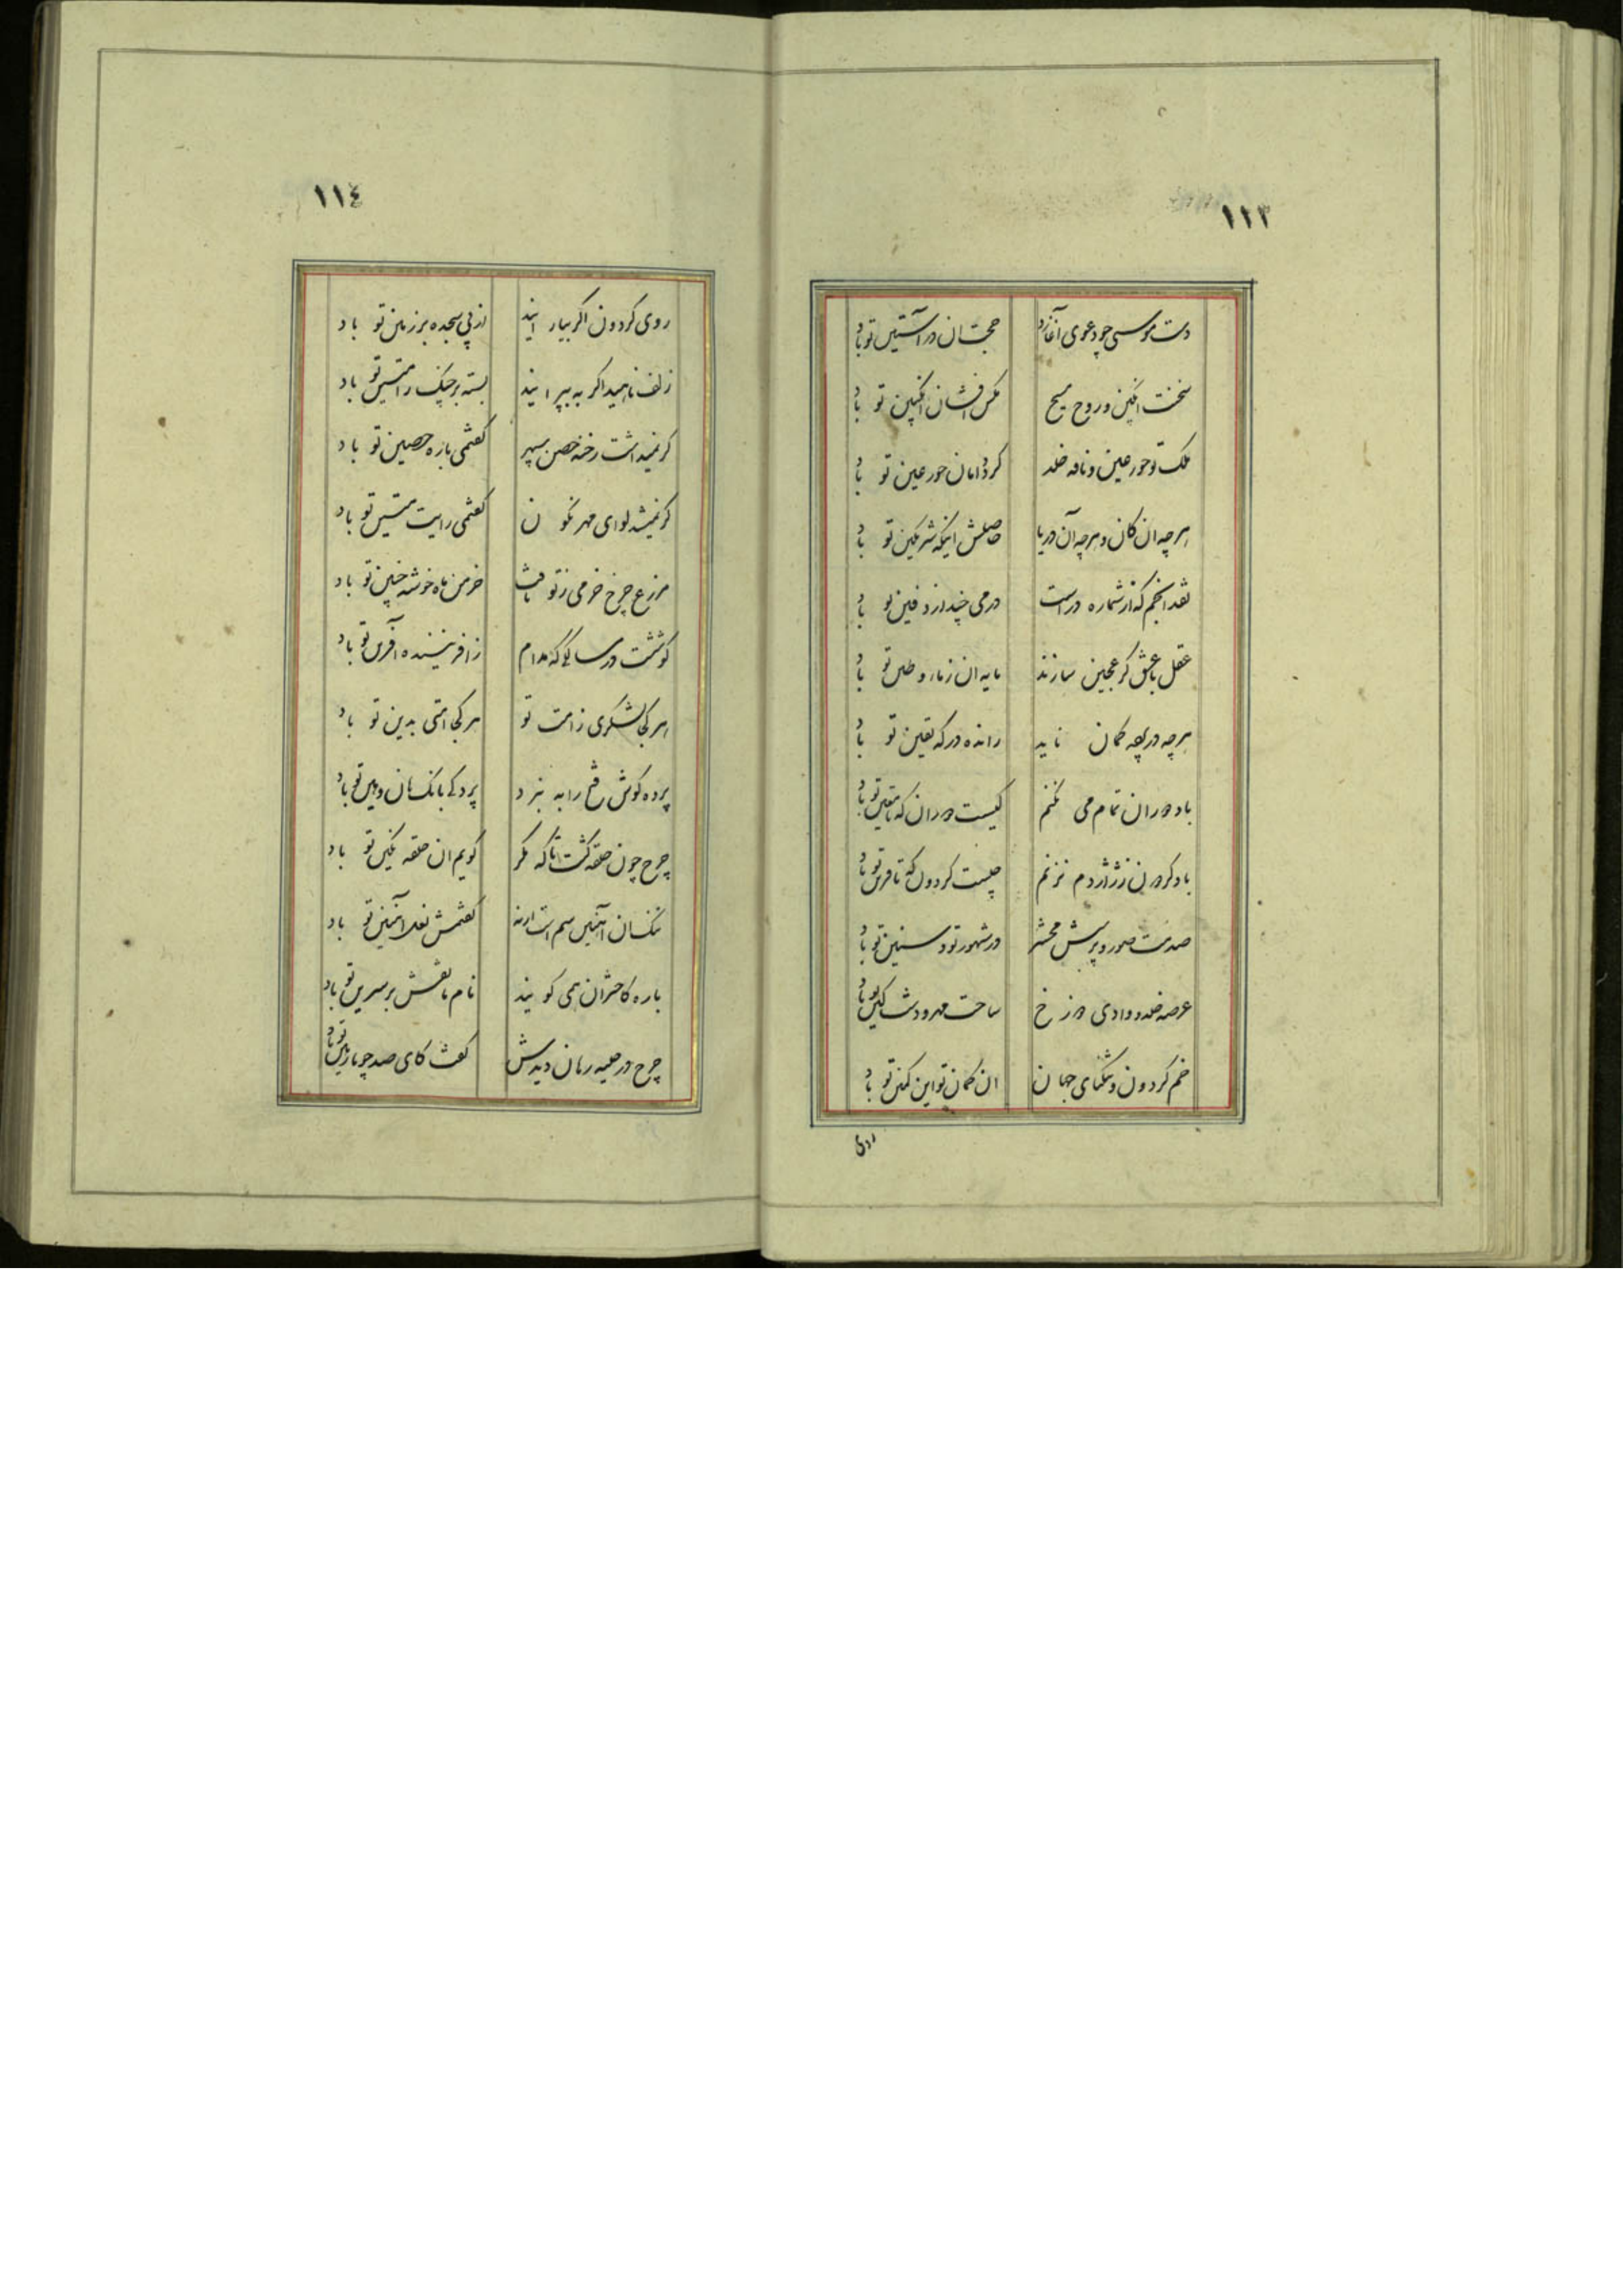 ١١٣
دست موسی چو دعوی آغازد حجت آن در آستین تو باد
سخت انگبین و روح مسیح مگس افشان انگبین تو باد
ملک تو حور عین و نافه خلد گرد دامان حور عین تو باد
هرچه آن کان و هرچه آن دریا حاصلش اینکه شرمگین تو باد
نقد انجم که از شماره در است درمی چند از دفین تو باد
عقل با عشق گر عجین سازند مایه آن ز ماء و طین تو باد
هرچه در پهنه گمان ناید رانده درگه یقین تو باد
یاد دوران تمام می نکنم کیست دوران که تا معین تو باد
یاد گردون نژاژ دم نزنم چیست گردون که تا قرین تو باد
صدمت صور و پرسش محشر در شهور تو و سنین تو باد
عرصه خلد و وادی دوزخ ساحت مهر و دشت کین تو باد
خم گردون و تنگنای جهان آن کمان تو این کمین تو باد
روی
١١٤
روی گردون اگر بیارایند از پی سجده بر زمین تو باد
زلف ناهید اگر به پیرایند بسته بر چنگ رامتین تو باد
گر نمیداشت رخنه حصن سپهر گفتمی باره حصین تو باد
گر نمیشد لوای مهر نگون گفتمی رایت متین تو باد
مزرع چرخ خرمی ز تو یافت خرمن ماه خوشه چین تو باد
گوشت در سالی که مدام ز آفریننده آفرین تو باد
هر کجا لشکری ز امت تو هر کجا امتی بدین تو باد
پرده گوش فتح را به نبرد پردگی بانگ هان و هین تو باد
چرخ چون حلقه گشت تا که مگر گویم آن حلقه نگین تو باد
تنگ سان آهنین سم است ارنه گفتمش نعل آهنین تو باد
باره کاخترآن همی گویند نام ما نقش بر سرین تو باد
چرخ در حمیه رمان دیدش گفت کای صد چو ما رهین تو باد